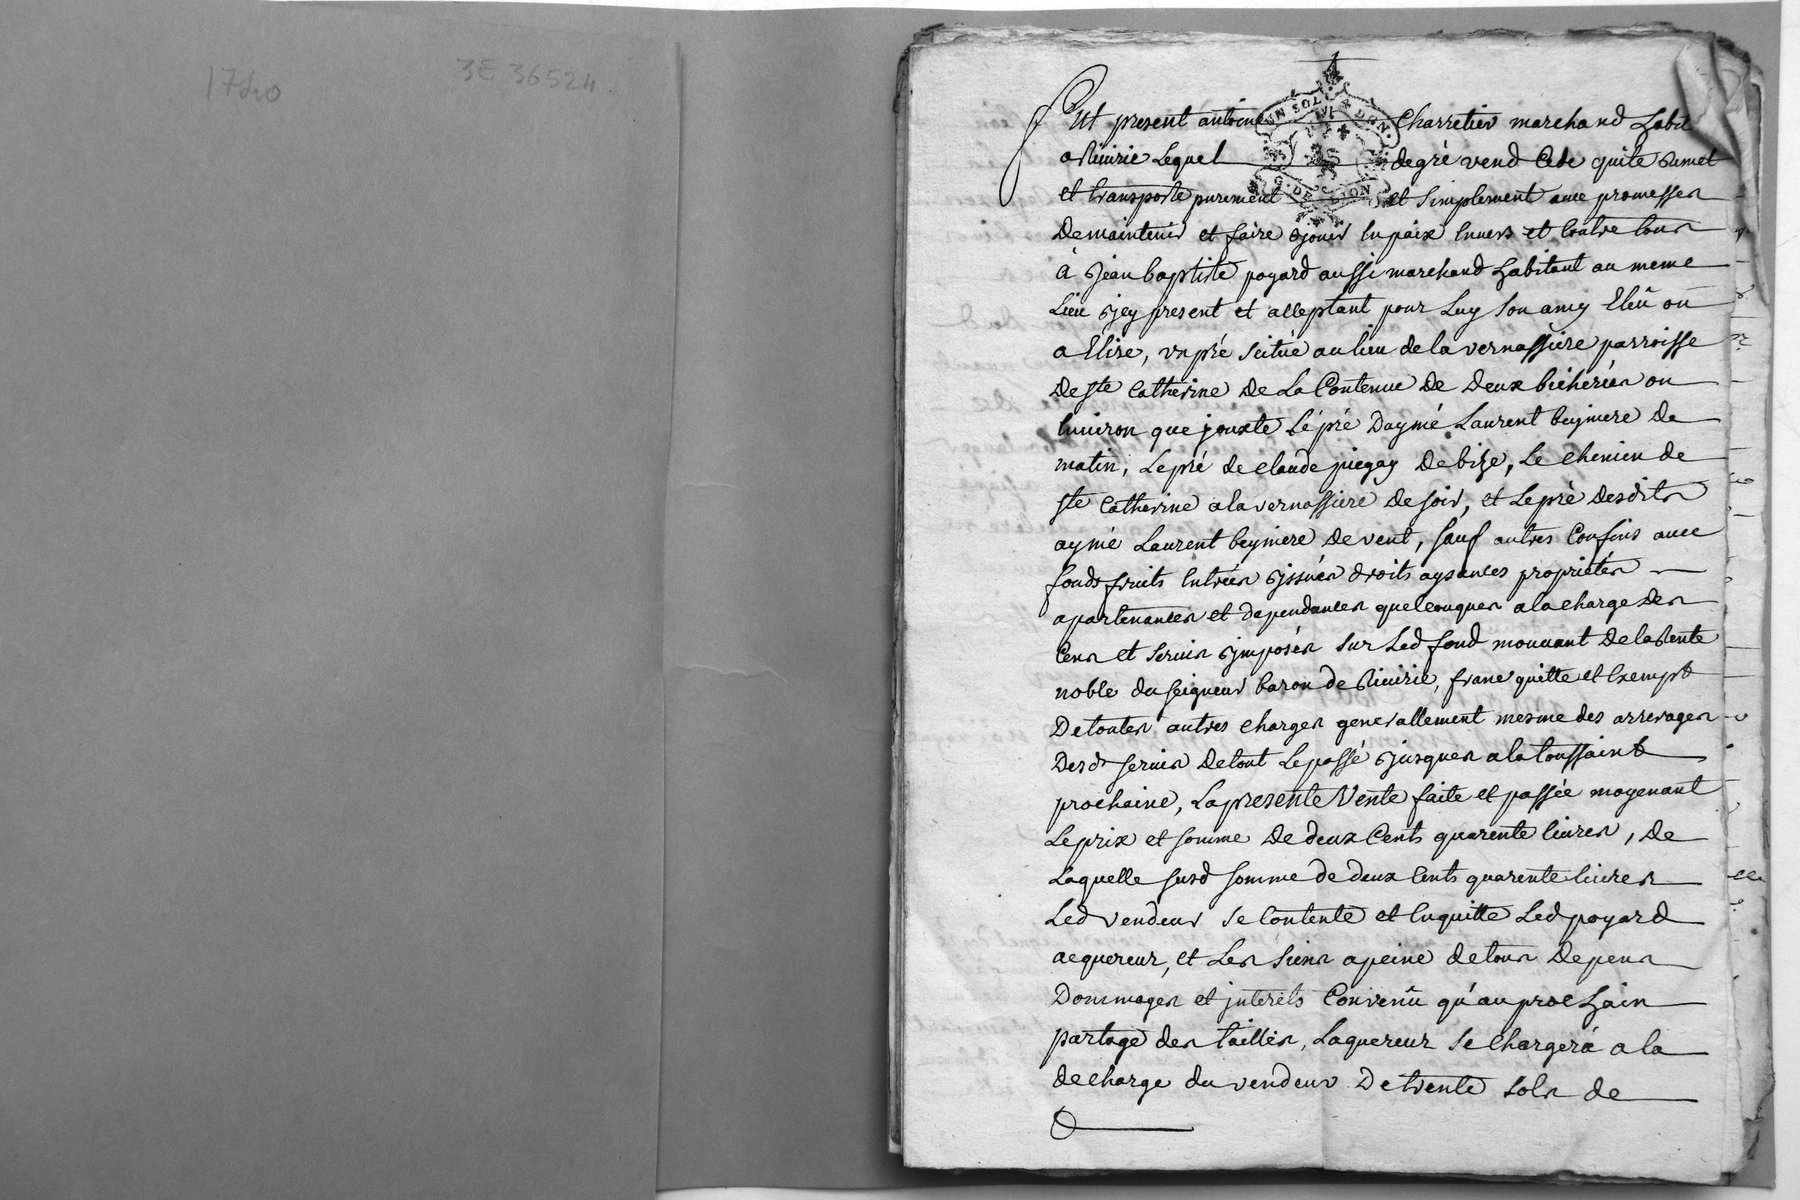 17d20
3E 36524
UN SOL 4 DEN.
G. DE LION
Fut present antoine Charretier marchand habit
a Riuirie Lequel de gré vend Cede quite Remet
et transporte purement et simplement auec promesses
de maintenir et faire Jouir En paix Enuers et Contre tous
à Jean baptiste poyard aussi marchand habitant au meme
Lieu Jcy present et acceptant pour Luy son amy Eleû ou
a Elire, vn pré scitué au lieu de la vernassiere parroisse
de ste Catherine de La Contenue de deux bicherées ou
Enuiron que jouxte Le pré d'aymé Laurent beyniere de
matin, Le pré de claude piegay de bize, Le chemin de
ste Catherine a la vernassiere de soir, et Le pré desdits
aymé Laurent beyniere de vent, sauf autres Confins auec
fonds fruits Entrées Jssües droits aysances proprietés
apartenances et dependances quelconques a la charge des
Cens et seruis Jmposés sur Led fond mouuant de la Rente
noble du seigneur baron de Riuirie, franc quitte et Exempt
de toutes autres charges generallement mesme des arrerages
desd seruis de tout Le passé Jusques a la toussaint
prochaine, La presente Vente faite et passée moyenant
Le prix et somme de deux Cents quarente liures, de
Laquelle susd somme de deux Cents quarente liures
Led vendeur se Contente et Enquitte Led poyard
acquereur, et Les siens a peine de tous depens
dommages et jnterets Convenû qu'au prochain
partage des tailles, Laquereur se chargerà a la
decharge du vendeur de trente sols de